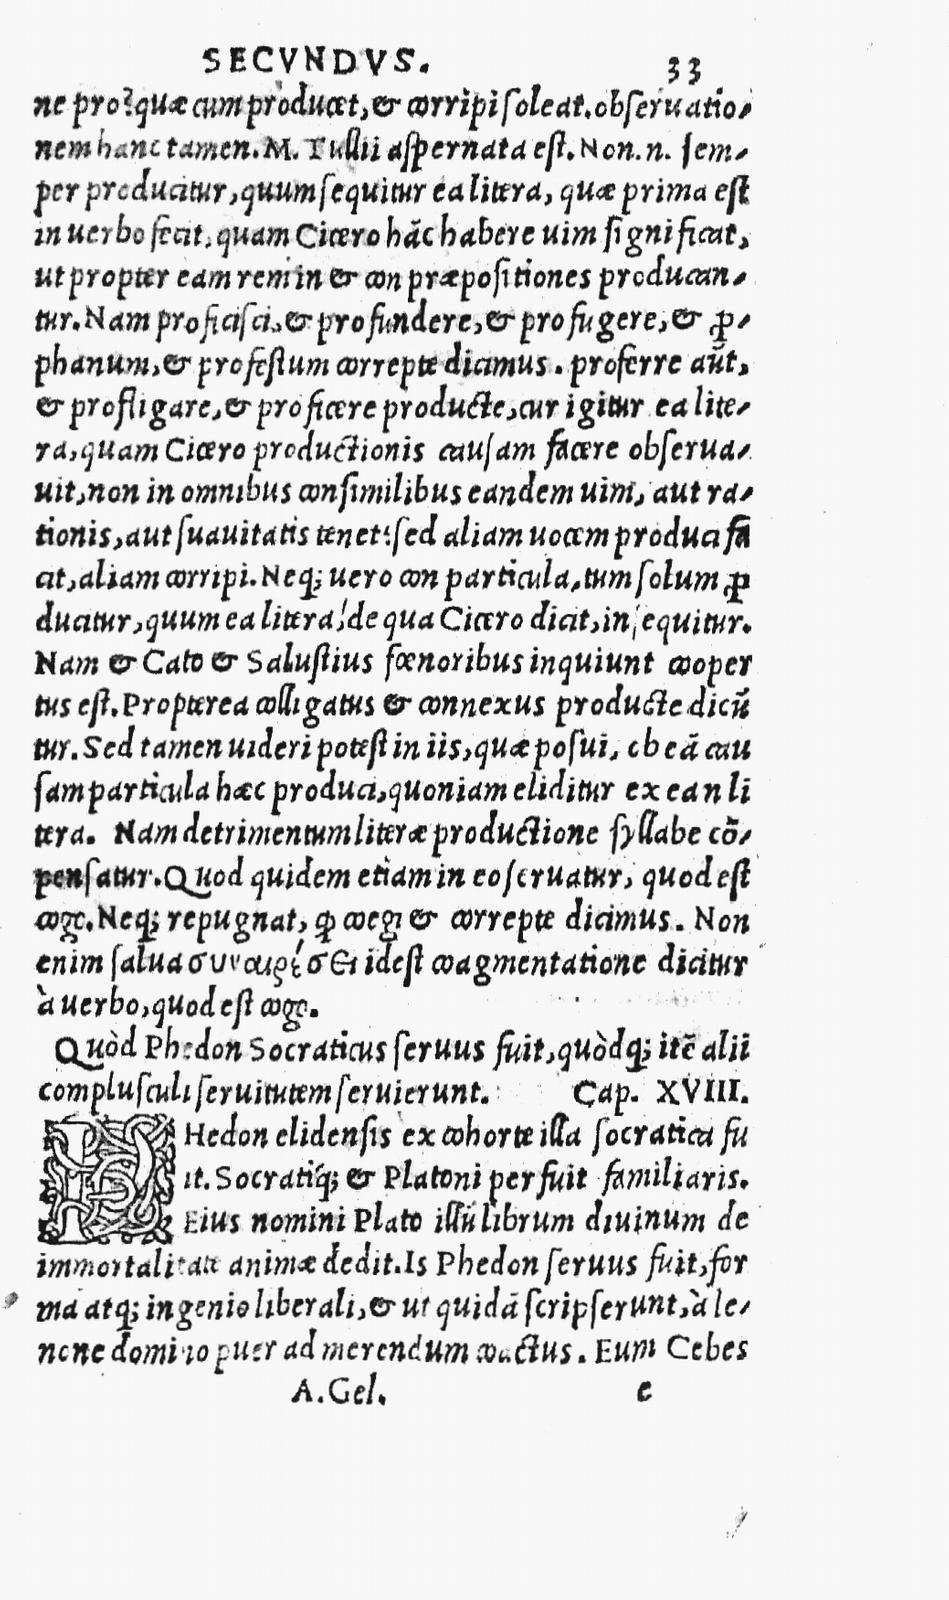 SECVNDVS. 33
ne pro? quæ cum producet, & corripi soleat. obseruatio-
nem hanc tamen. M. Tullii aspernata est. Non. n. sem-
per producitur, quum sequitur ea litera, quæ prima est
in uerbo fecit, quam Cicero hāc habere uim significat,
ut propter eam rem in & con præpositiones producan-
tur. Nam proficisci, & profundere, & profugere, & ꝓ-
phanum, & profestum correpte dicimus. proferre aūt,
& profligare, & proficere producte, cur igitur ea lite-
ra, quam Cicero productionis causam facere obserua-
uit, non in omnibus consimilibus eandem uim, aut ra-
tionis, aut suauitatis tenet: sed aliam uocem produci fa
cit, aliam corripi. Neq; uero con particula, tum solum ꝓ
ducitur, quum ea litera, de qua Cicero dicit, insequitur.
Nam & Cato & Salustius fœnoribus inquiunt cooper
tus est. Propterea colligatus & connexus producte dicū
tur. Sed tamen uideri potest in iis, quæ posui, ob eā cau
sam particula hæc produci, quoniam eliditur ex ea n li
tera. Nam detrimentum literæ productione syllabe cō-
pensatur. Quod quidem etiam in eo seruatur, quod est
cogo. Neq; repugnat, ꝙ coegi & correpte dicimus. Non
enim salua συναιρέσει idest coagmentatione dicitur
à uerbo, quod est cogo.
Quòd Phedon Socraticus seruus fuit, quòdq; itē alii
complusculi seruitutem seruierunt. Cap. XVIII.
PHedon elidensis ex cohorte illa socratica fu
it. Socratiq́; & Platoni per fuit familiaris.
Eius nomini Plato illū librum diuinum de
immortalitate animæ dedit. Is Phedon seruus fuit, for
ma atq; ingenio liberali, & ut quidā scripserunt, à le-
none domino puer ad merendum coactus. Eum Cebes
A. Gel. e